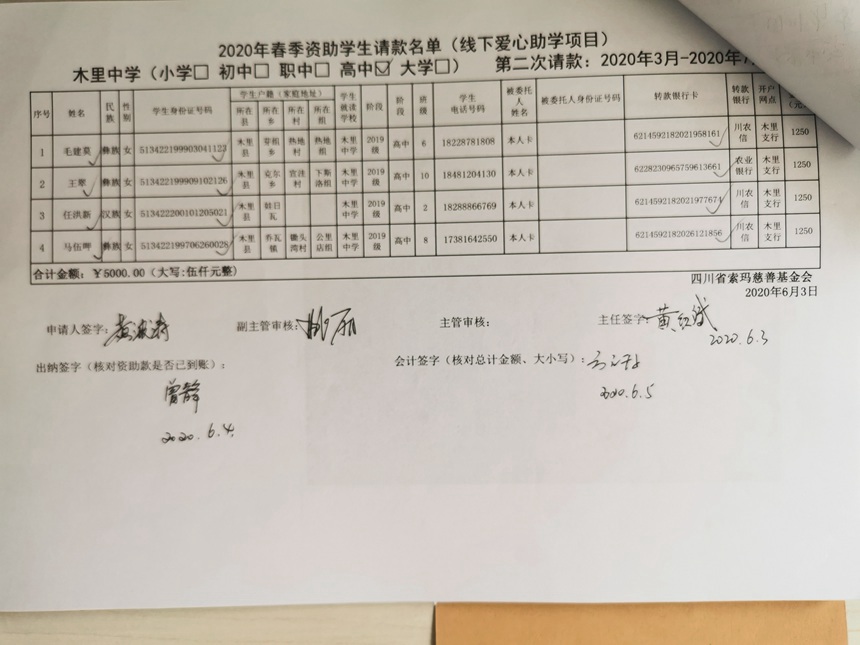 2020年春季资助学生请款名单（线下爱心助学项目）
木里中学（小学□ 初中□ 职中□ 高中☑ 大学□） 第二次请款：2020年3月-2020年7
序号 姓名 民族 性别 学生身份证号码 学生户籍（家庭地址） 所在县 所在乡 所在村 所在组 学生就读学校 阶段 阶段 班级 学生电话号码 被委托人姓名 被委托人身份证号码 转款银行卡 转款银行 开户网点
1 毛建莫 彝族 女 513422199903041123 木里县 芽祖乡 热地村 热地组 木里中学 2019级 高中 6 18228781808 本人卡 6214592182021958161 川农信 木里支行 1250
2 王 彝族 女 513422199909102126 木里县 克尔乡 宣洼村 下斯洛组 木里中学 2019级 高中 10 18481204130 本人卡 6228230965759613661 农业银行 木里支行 1250
3 任洪新 汉族 女 513422200101205021 木里县 日瓦 木里中学 2019级 高中 2 18288866769 本人卡 6214592182021977674 川农信 木里支行 1250
4 马伍呷 彝族 女 513422199706260028 木里县 乔瓦镇 锄头湾村 公里店组 木里中学 2019级 高中 8 17381642550 本人卡 6214592182026121856 川农信 木里支行 1250
合计金额：￥5000.00（大写:伍仟元整）
四川省索玛慈善基金会
2020年6月3日
申请人签字： 副主管审核： 主管审核： 主任签字： 黄红斌
2020.6.3
出纳签字（核对资助款是否已到账）： 会计签字（核对总计金额、大小写）：
曾静
2020.6.5
2020.6.4.